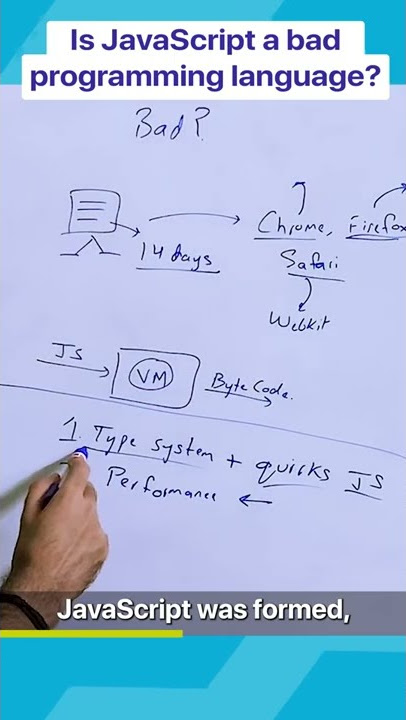 Is JavaScript a bad
programming language?
Bad?
14 days
Chrome, Firefox
Safari
Webkit
JS
VM
Byte Code.
1. Type system + quirks JS
Performance ←
JavaScript was formed,